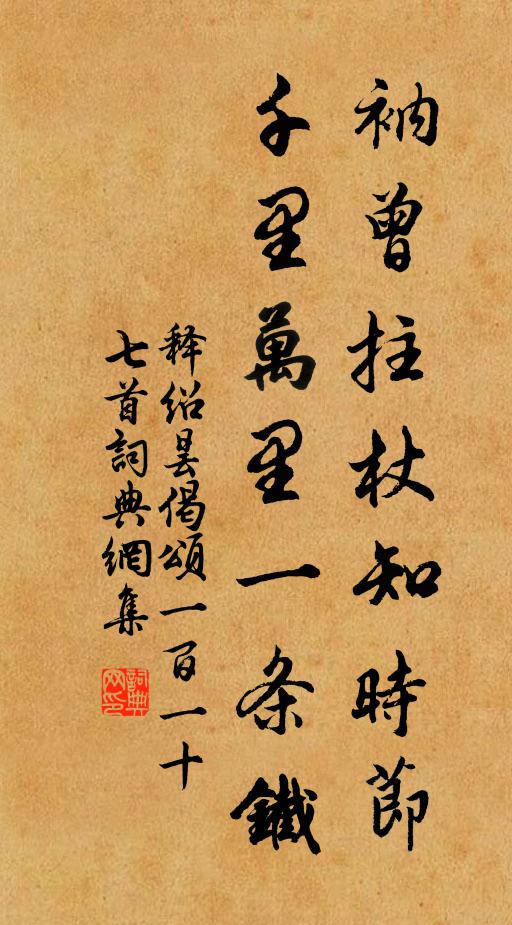 衲曾拄杖知時節
千里萬里一条鐵
释紹曇偈頌一百一十
七首詞典網集
詞典網印